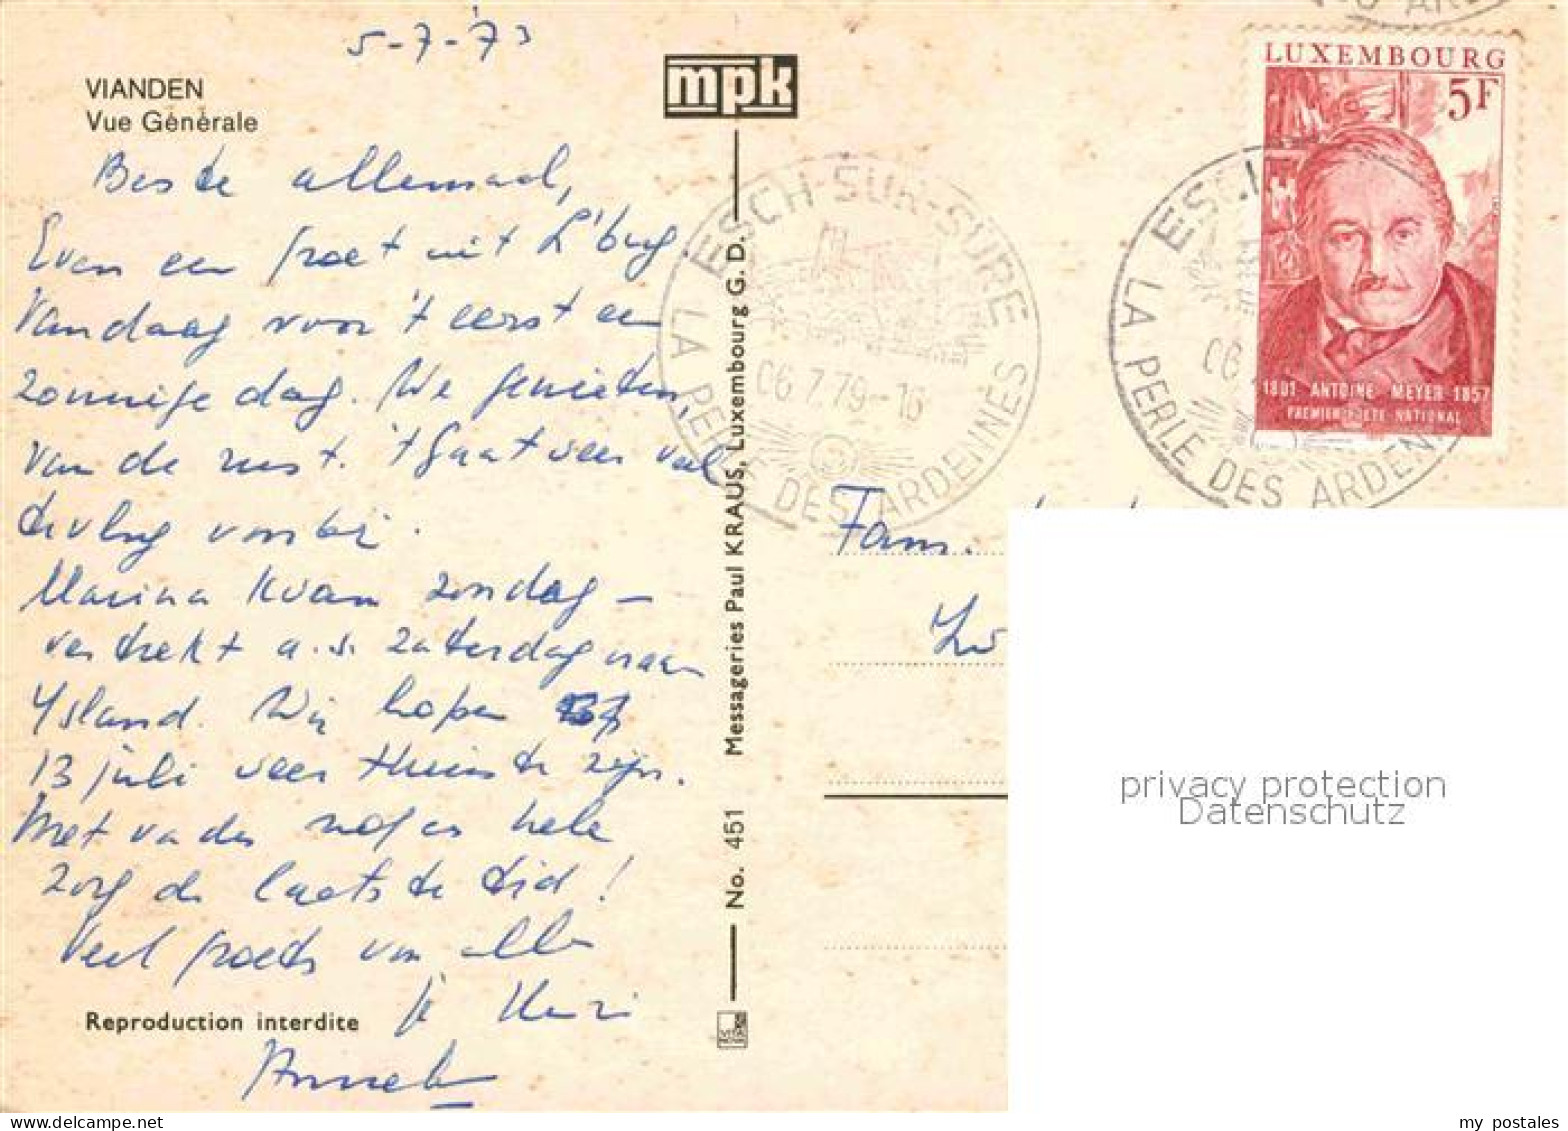 5-7-'73
VIANDEN
Vue Générale
mpk
Beste allemaal,
Even een groet uit L'burg.
Vandaag voor 't eerst een
zonnige dag. We genieten
van de rust. 't Gaat weer veel
te vlug voorbij.
Marina kwam zondag –
vertrekt a.s. zaterdag naar
Ysland. Wij hopen
13 juli weer thuis te zijn.
Met vader nog een hele
zorg de laatste tijd!
Veel groeten van allen
Reproduction interdite
No. 451 Messageries Paul KRAUS, Luxembourg G. D.
ESCH-SUR-SURE
06.7.79-16
LA PERLE DES ARDENNES
ESCH
06
LA PERLE DES ARDENN
LUXEMBOURG
5F
1801 ANTOINE MEYER 1857
PREMIER POETE NATIONAL
Fam.
privacy protection
Datenschutz
my postales